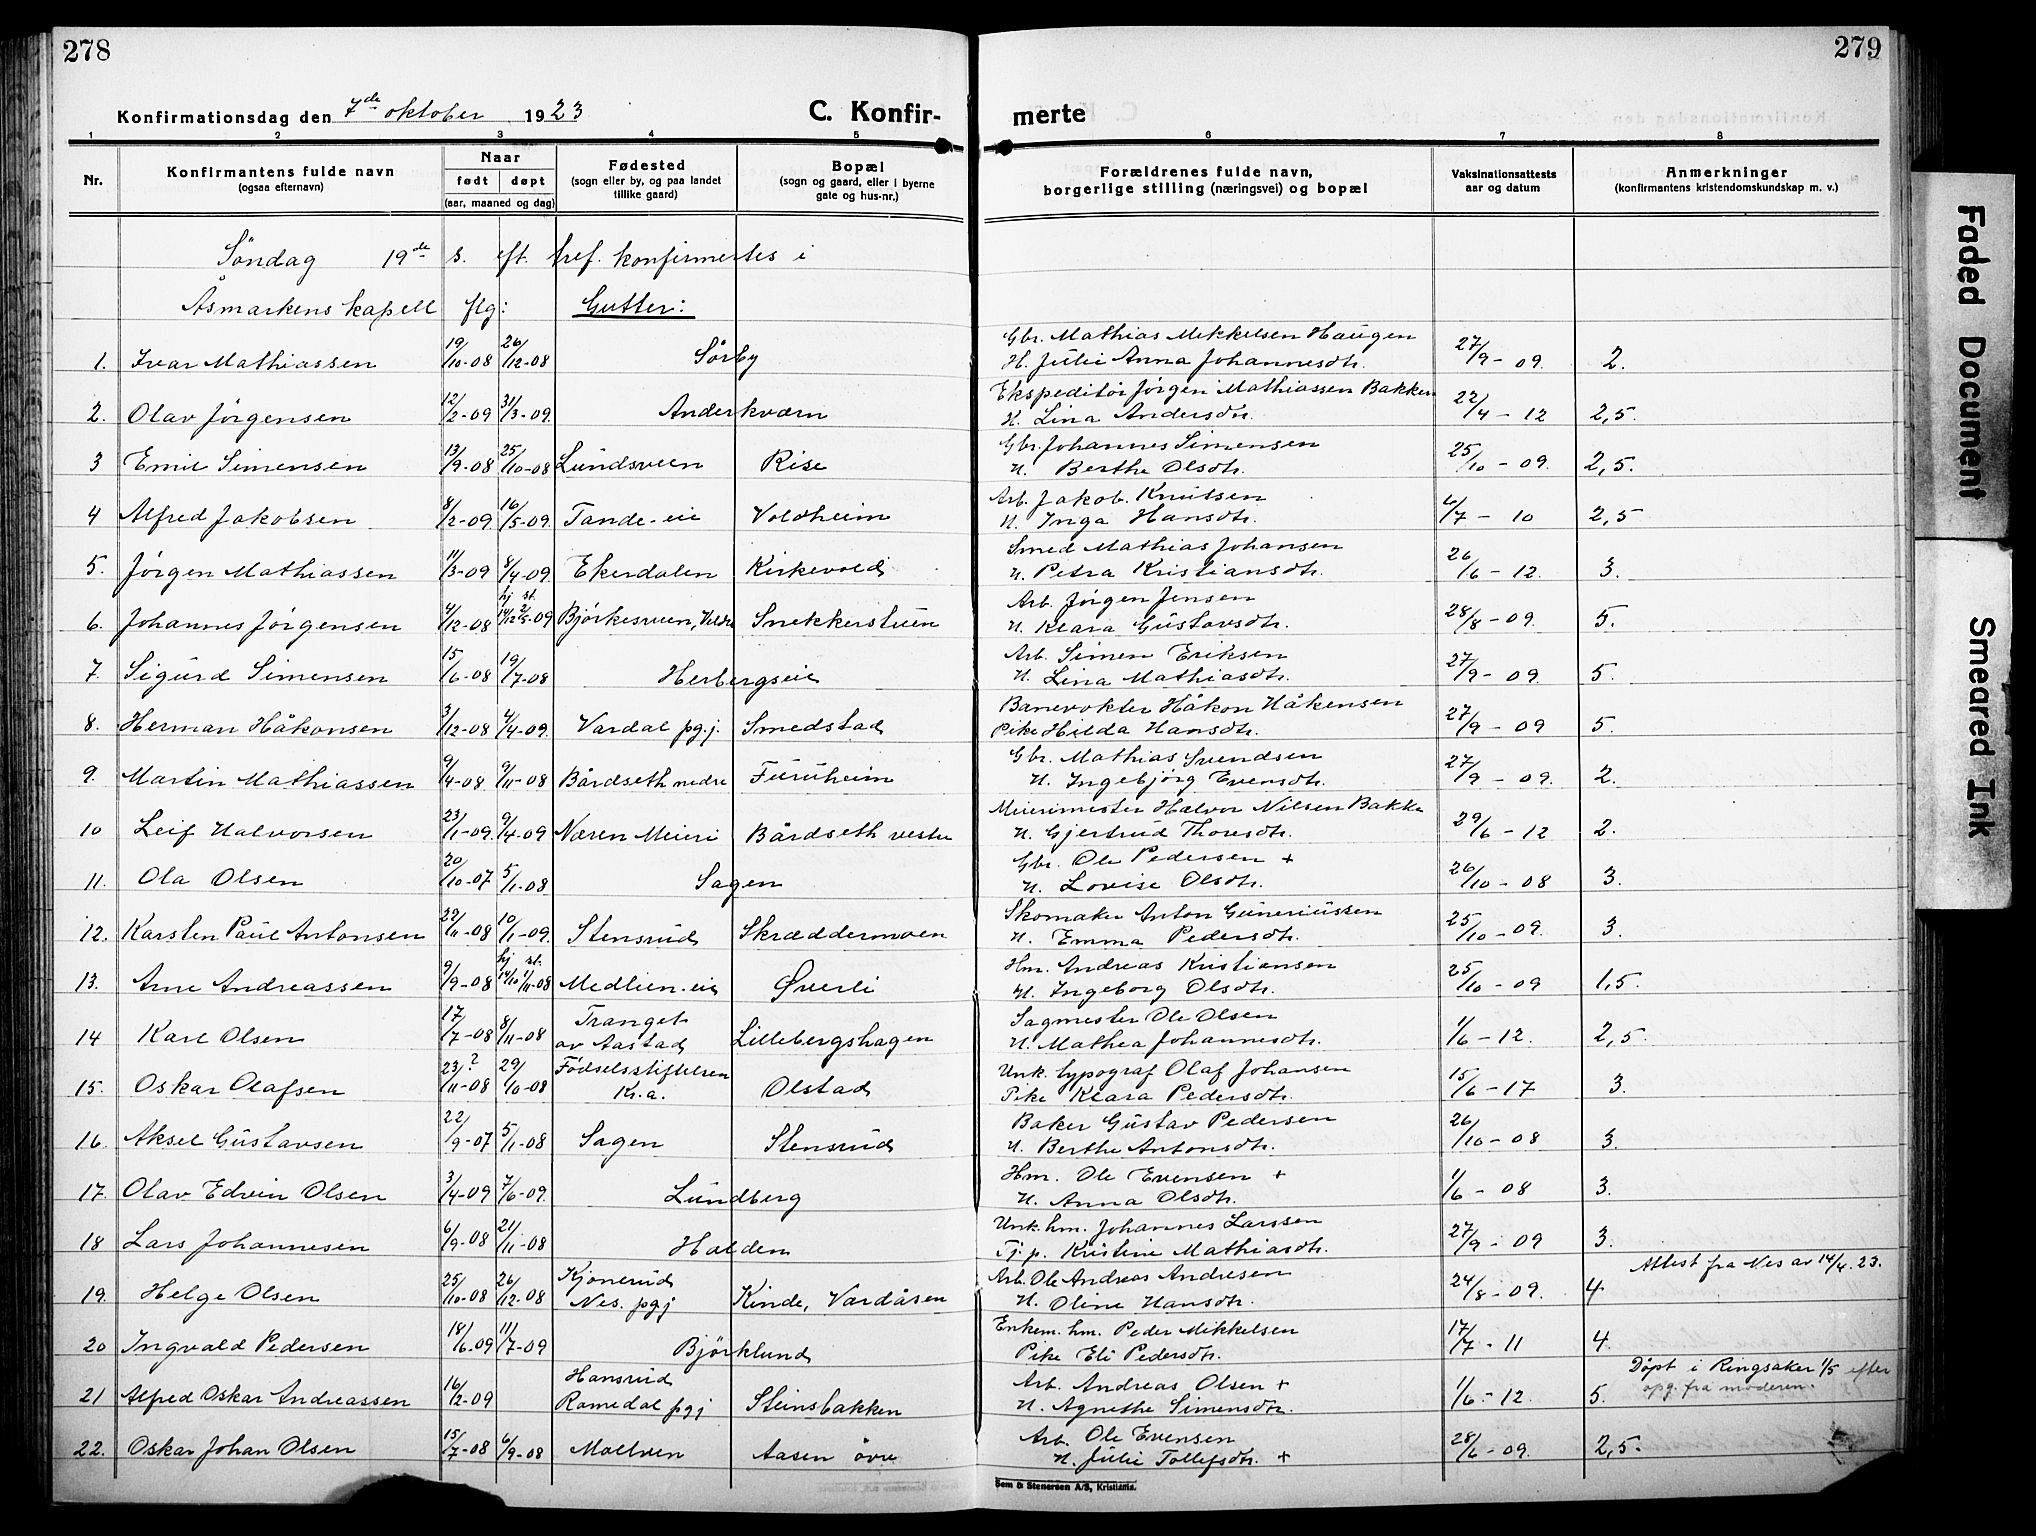 278
279
Konfirmationsdag den 7de oktober 1923
C. Konfir-
merte
1 2 3 4 5 6 7 8
Nr.
Konfirmantens fulde navn
(ogsaa efternavn)
Naar
født døpt
(aar, maaned og dag)
Fødested
(sogn eller by, og paa landet
tillike gaard)
Bopæl
(sogn og gaard, eller i byerne
gate og hus-nr.)
Forældrenes fulde navn,
borgerlige stilling (næringsvei) og bopæl
Vaksinationsattests
aar og datum
Anmerkninger
(konfirmantens kristendomskundskap m. v.)
Søndag 19de s. eft. tref. konfirmertes i
Åsmarkens kapell flg: Gutter:
1. Ivar Mathiassen 19/10-08 26/12-08 Sørby Gbr. Mathias Mikkelsen Haugen
H. Julie Anna Johannesdtr. 27/9-09. 2.
2. Olav Jörgensen 12/2-09 31/3-09. Anderkværn Ekspeditör Jörgen Mathiassen Bakken
H. Lina Andersdtr. 22/4-12 2,5.
3 Emil Simensen 13/9-08 25/10-08 Lundsveen Rise Gbr. Johannes Simensen
H. Berthe Olsdtr. 25/10-09. 2,5.
4 Alfred Jakobsen 8/2-09. 16/5-09. Tande-eie Voldheim Arb. Jakob Knutsen
H. Inga Hansdtr. 6/7-10 2,5
5. Jörgen Mathiassen 11/3-09 8/4-09. Ekerdalen Kirkevold Smed Mathias Johansen
H. Petra Kristiansdtr. 26/6-12. 3.
6. Johannes Jörgensen 4/12-08 hj 14/12 st. 2/5-09 Bjørkesveen, Veldre Snekkerstuen Arb. Jörgen Jensen
H. Klara Gustavsdtr. 28/8-09. 5.
7. Sigurd Simensen 15/6-08 19/7-08 Herbergseie Arb. Simen Eriksen
H. Lina Mathiasdtr. 27/9-09. 5.
8. Herman Håkonsen 3/12-08 4/4-09. Vardal pgj. Smedstad Banevokter Håkon Håkensen
Pike Hilda Hansdtr. 27/9-09 5.
9. Martin Mathiassen 9/4-08 9/11-08 Bårdseth nedre Furuheim Gbr. Mathias Svendsen
H. Ingebjørg Evensdtr. 27/9-09. 2.
10 Leif Halvorsen 23/1-09. 9/4-09 Næren Meieri Bårdseth vestre Meierimester Halvor Nilsen Bakke
H. Gjertrud Thoresdtr. 29/6-12 2.
11. Ola Olsen 20/10-07 5/1-08 Sagen Gbr. Ole Pedersen +
H. Lovise Olsdtr. 26/10-08 3.
12. Karsten Paul Antonsen 22/11-08 10/1-09. Stensrud Skræddermoen Skomaker Anton Guneriussen
H. Emma Pedersdtr. 25/10-09. 3.
13. Arne Andreassen 9/9-08 hj 14/10 st. 1/11-08 Medlien-eie Øverli Hm. Andreas Kristiansen
H. Ingeborg Olsdtr. 25/10-09 1,5.
14 Karl Olsen 17/7-08 8/11-08 Tranget
av Aastad Lillebergshagen Sagmester Ole Olsen
H. Mathea Johannesdtr. 1/6-12. 2,5.
15. Oskar Olafsen 23/11-08 ? 29/10-08 Fødselsstiftelsen
Kr.a. Olstad Unk. typograf Olaf Johansen
Pike Klara Pedersdtr. 15/6-17 3.
16. Aksel Gustavsen 22/9-07 5/1-08 Sagen Stensrud Baker Gustav Pedersen
H. Berthe Antonsdtr. 26/10-08 3.
17. Olav Edvin Olsen 3/4-09 7/6-09. Lundberg Hm. Ole Evensen +
H. Anna Olsdtr. 1/6-08 3.
18 Lars Johannesen 6/9-08 21/11-08 Halden Unk. hm. Johannes Larssen
Tj.p. Kristine Mathiasdtr. 27/9-09 3.
19. Helge Olsen 25/10-08 26/12-08 Kjonerud
Nes. pgj Kinde, Vardåsen Arb. Ole Andreas Andresen
H. Oline Hansdtr. 24/8-09. 4. Attest fra Nes av 14/4.23.
20 Ingvald Pedersen 18/6-09 11/7-09 Bjørklund Enkem. hm. Peder Mikkelsen
Pike Eli Pedersdtr. 17/7-11 4.
21 Alfred Oskar Andreassen 16/2-09 Hansrud
Romedal pgj Steinsbakken Arb. Andreas Olsen +
H. Agnethe Simensdtr. 1/6-12. 5. Döpt i Ringsaker 1/5 efter
opg. fra moderen.
22. Oskar Johan Olsen 15/7-08 6/9-08 Moelven Aasen övre Arb. Ole Evensen
H. Julie Tollefsdtr. + 28/6-09. 2,5.
Sem & Stenersen A/S, Kristiania.
Faded Document
Smeared Ink